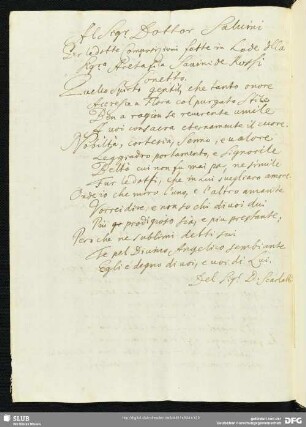 Al Sig.r Dottor Salvini
Per le dotte composizioni fatte in Lode della
Sig.ra Aretafila Savini de Rossi
Sonetto
Quello spirto gentil, che tanto onore
Accresce a Flora col purgato stile
Ben a ragion se reverente umile
A voi consacra eternamente il cuore.
Nobiltà, cortesia, senno, e valore
Leggiadro portamento, e signorile
Beltà cui non fu mai pari ne simile
Fur le doti, che in lui svegliaro amore
Ond'io che miro l'uno, e l'altro amante
Vorrei dire, e non so chi di voi dui
Più prodigioso sia, e più prestante;
Però che ne sublimi detti sui
Te pel Divino, Angelico sembiante
Egli è degno di voi, e voi di Lui.
Del Sig.r D.
SLUB
DFG